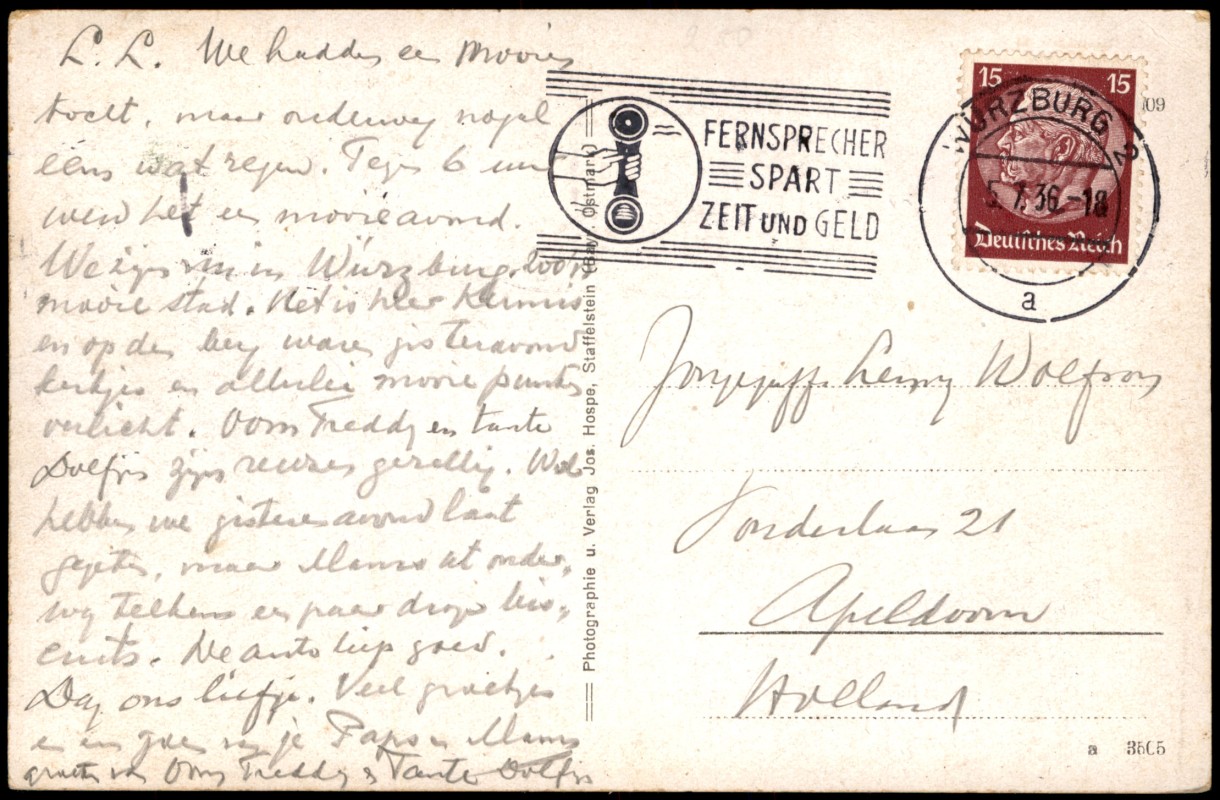 L. L. We hadden een mooien
tocht, maar onderweg nogal
eens wat regen. Tegen 6 uur
werd het een mooie avond.
We zijn nu in Würzburg, 'n
mooie stad. Het is hier Kermis
en op den berg waren gisteravond
kerkjes en allerlei mooie punten
verlicht. Oom Freddy en tante
Dolfijs zijn reuze gezellig. Wel
hebben we gisterenavond laat
gegeten, maar Mams at onder-
weg telkens een paar droge bis-
cuits. De auto liep goed.
Dag ons liefje. Veel groetjes
en een zoen van je Paps en Mams
groeten van Oom Freddy en Tante
FERNSPRECHER
SPART
ZEIT UND GELD
WÜRZBURG 2
5.7.36.-18
a
15 15
Deutsches Reich
09
Photographie u. Verlag Jos. Hospe, Staffelstein (Bay. Ostmark)
Lenny Wolfson
21
Apeldoorn
Holland
a 3505